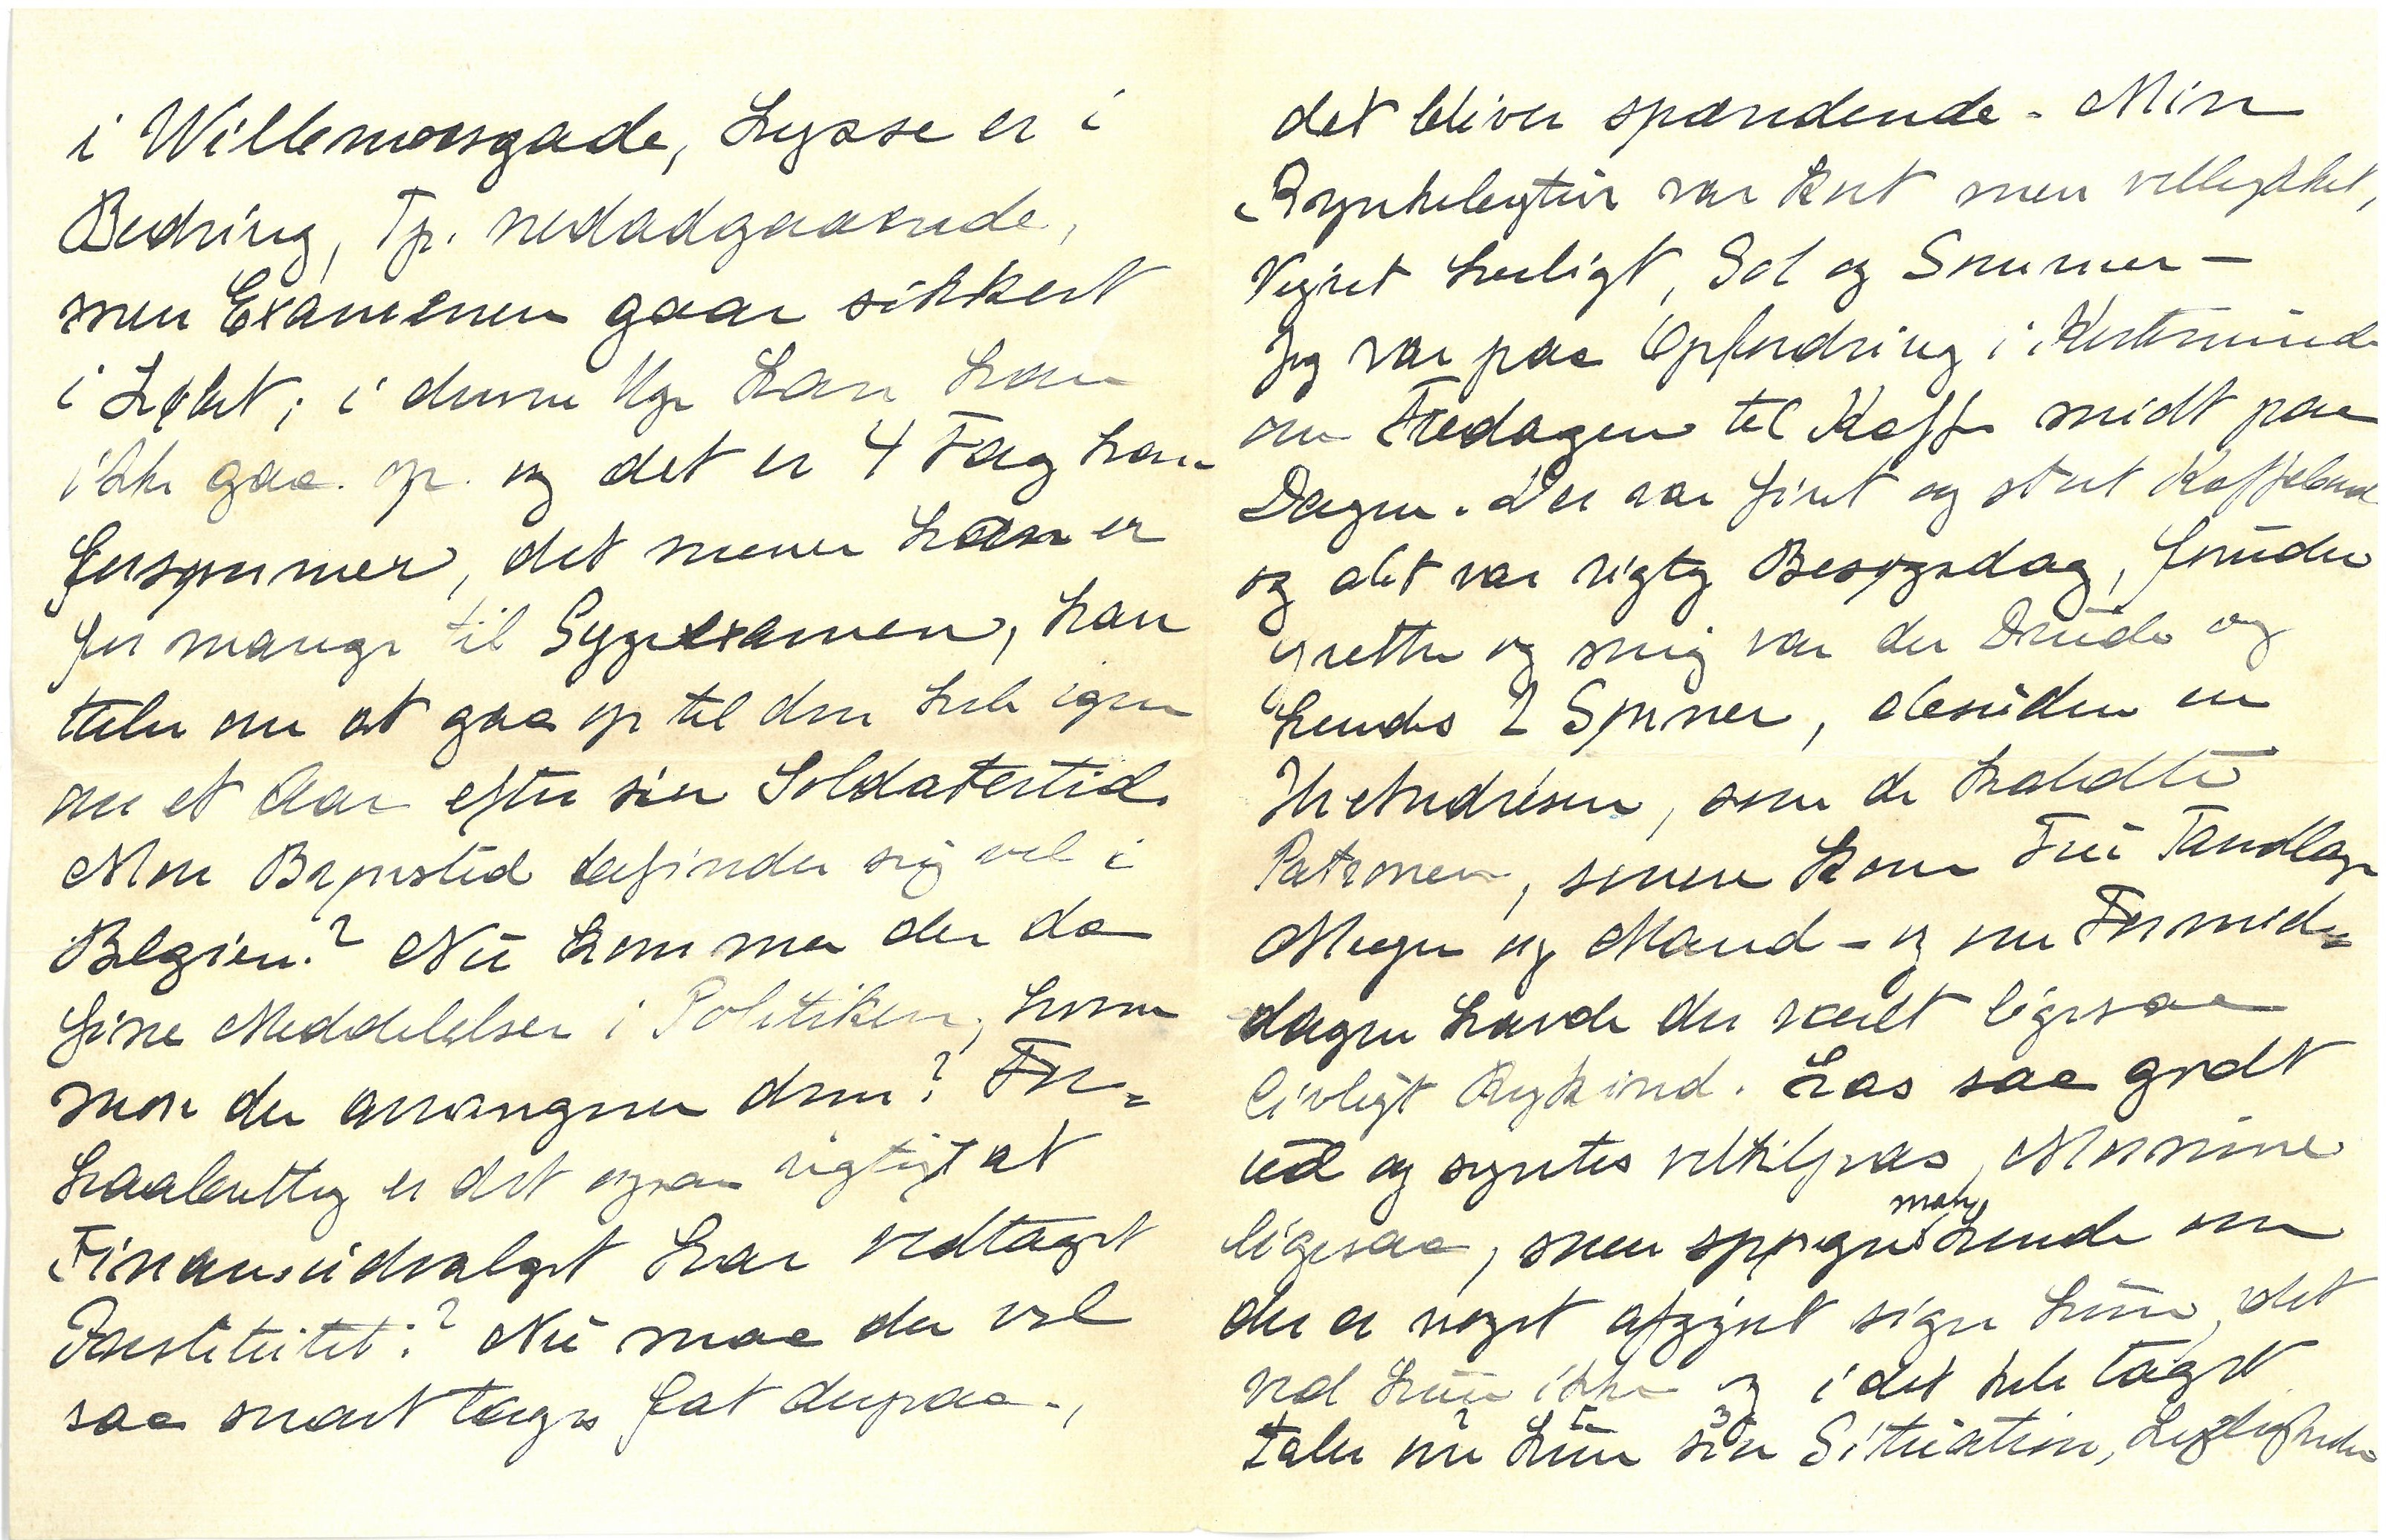 i Willemoesgade, Lysse er i
Bedring, Tp. nedadgaaende,
men Examenen gaar sikkert
i Løbet; i denne Uge kan han
ikke gaa op og det er 4 Fag han
forsømmer, det mener han er
for mange til Sygeexamen, han
taler om at gaa op til den hele igen
om et Aar efter sin Soldatertid.
Mon Brønsted befinder sig vel i
Belgien? Nu kommer der da
fine Meddelelser i Politiken, hvem
mon der arrangerer dem? For=
haabentlig er det ogsaa rigtigt at
Finansudvalget har vedtaget
Institutet? Nu maa der vel
saa snart tages fat derpaa.,
det bliver spændende. Min
Rynkebytur var kort men vellykket,
Vejret herligt, Sol og Sommer –
Jeg var paa Opfordring i Kerteminde
om Fredagen til Kaffe midt paa
Dagen. Der var fint og stort Kaffebord
og det var rigtig Besøgsdag, foruden
Grethe og mig var der Drude og
hendes 2 Sønner, desuden en
Hr Andrésen, som de kaldte
Patronen, senere kom Fru Tandlæge
Meyer og Mand – og om Formid=
dagen havde der været ligesaa
livligt Rykind. Las saa godt
ud og syntes veltilpas, Mornine
ligesaa, men spørger man hende om
der er noget afgjort siger hun, det
ved hun ikke og i det hele taget
taler nu hun sin Situation, Lejligheden